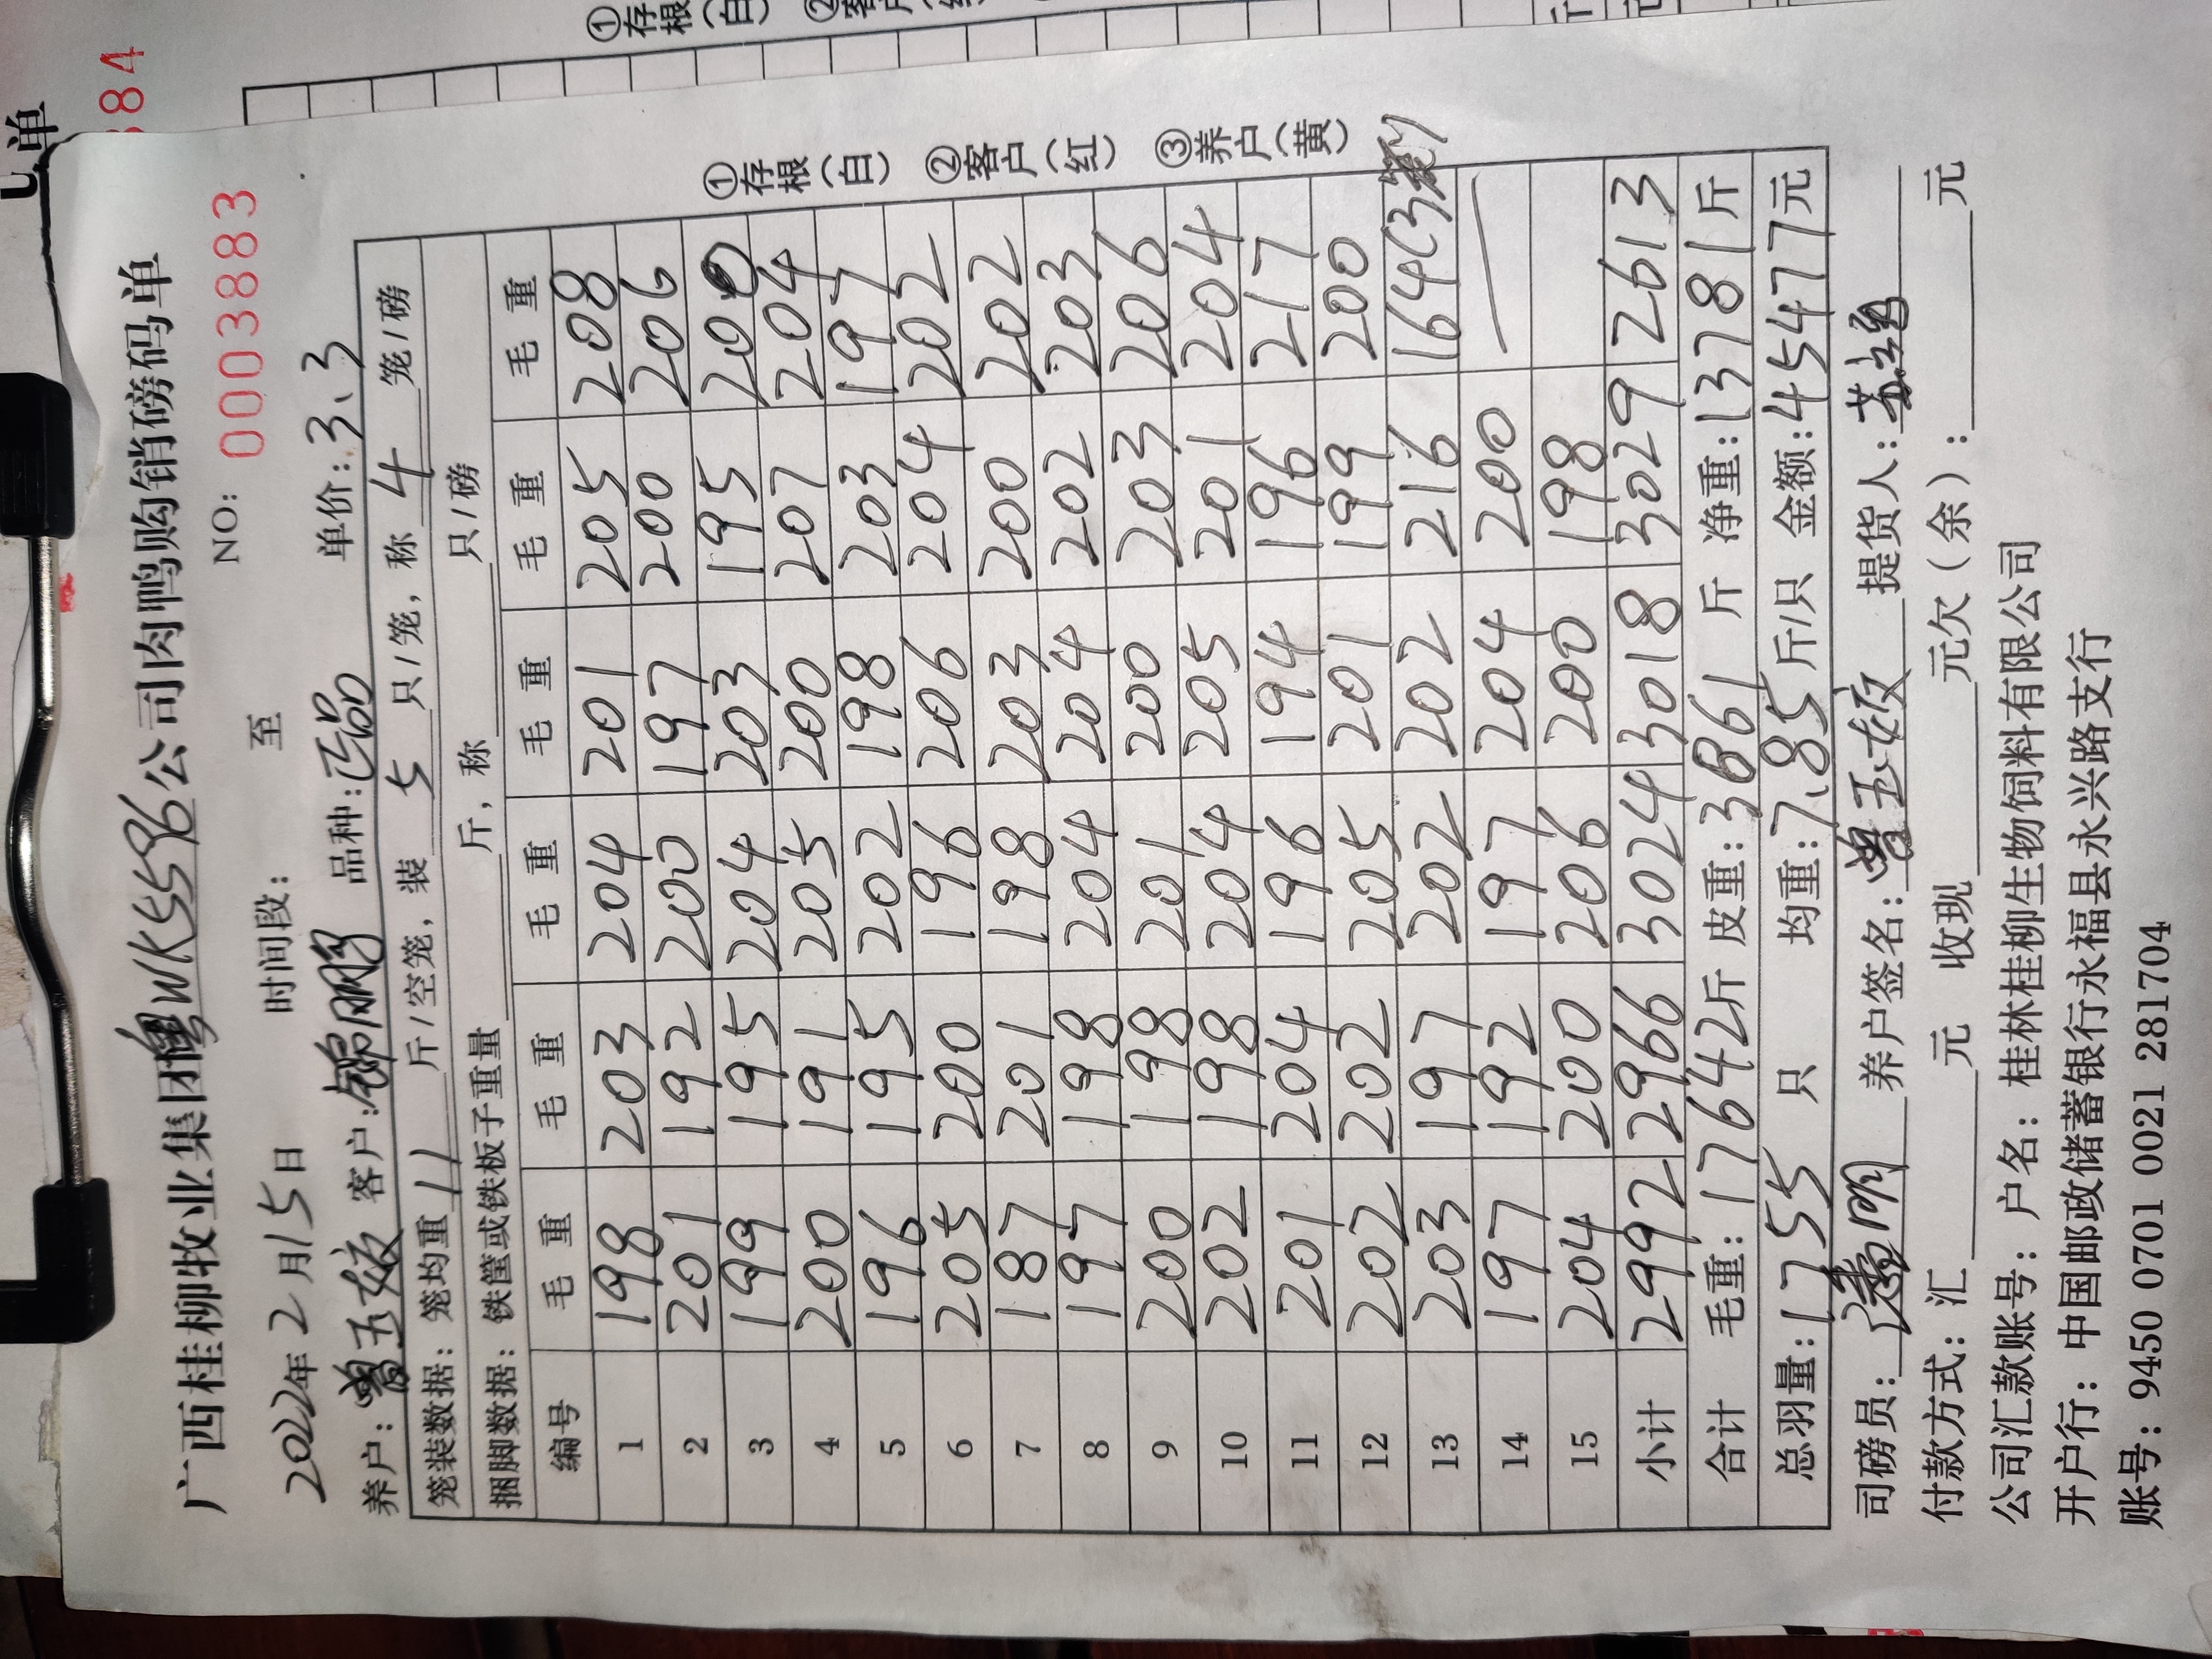 广西桂柳牧业集团粤WK5596公司肉鸭购销磅码单
NO: 0003883
2022年2月15日 时间段: 至
养户: 曾玉姣 客户: 锦鹏 品种: 正品 单价: 3.3
笼装数据: 笼均重 11 斤/空笼, 装 5 只/笼, 称 4 笼/磅
捆脚数据: 铁筐或铁板子重量 斤, 称 只/磅
编号 毛重 毛重 毛重 毛重 毛重 毛重
1 198 203 204 201 205 208
2 201 192 200 197 200 206
3 199 195 204 203 195 200
4 200 191 205 200 207 204
5 196 195 202 198 203 197
6 205 200 196 206 204 202
7 187 201 198 203 200 202
8 197 198 204 204 202 203
9 200 198 201 200 203 206
10 202 198 204 205 201 204
11 201 204 196 194 196 217
12 202 202 205 201 199 200
13 203 197 202 202 216 164(3笼)
14 197 192 197 204 200 —
15 204 200 206 200 198
小计 2992 2966 3024 3018 3029 2613
合计 毛重: 17642斤 皮重: 3861 斤 净重: 13781斤
总羽量: 1755 只 均重: 7.85斤/只 金额: 45477元
司磅员: 养户签名: 曾玉姣 提货人:
付款方式: 汇 元 收现 元欠(余): 元
公司汇款账号: 户名: 桂林桂柳生物饲料有限公司
开户行: 中国邮政储蓄银行永福县永兴路支行
账号: 9450 0701 0021 281704
①存根(白) ②客户(红) ③养户(黄)
单
884
①存根(白)